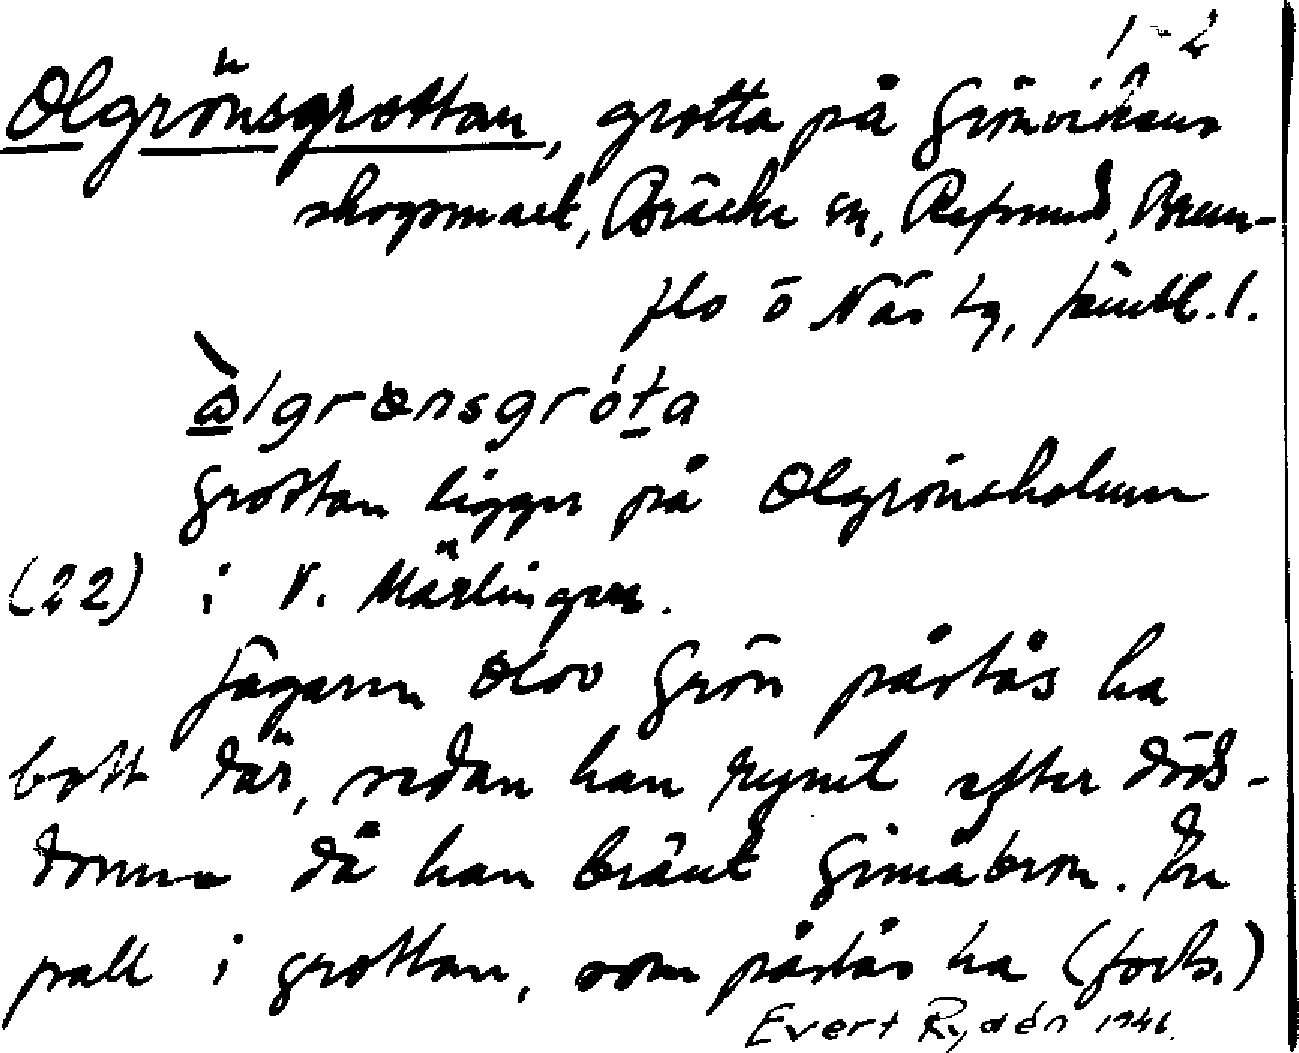 1-2
Olgrönsgrottan, grotta på Grönvikens
skogsmark, Bräcke sn, Refsund, Brun-
flo o Näs tg, Jämtl. l.
grottan ligger på Olgrönsholmen
(22) i V. Märlingen.
Jägaren Olov Grön påstås ha
bott där, sedan han rymt efter döds-
domen då han bränt Gimåbron. En
pall i grottan, som påstås ha (forts.)
Evert Rydén 1946.